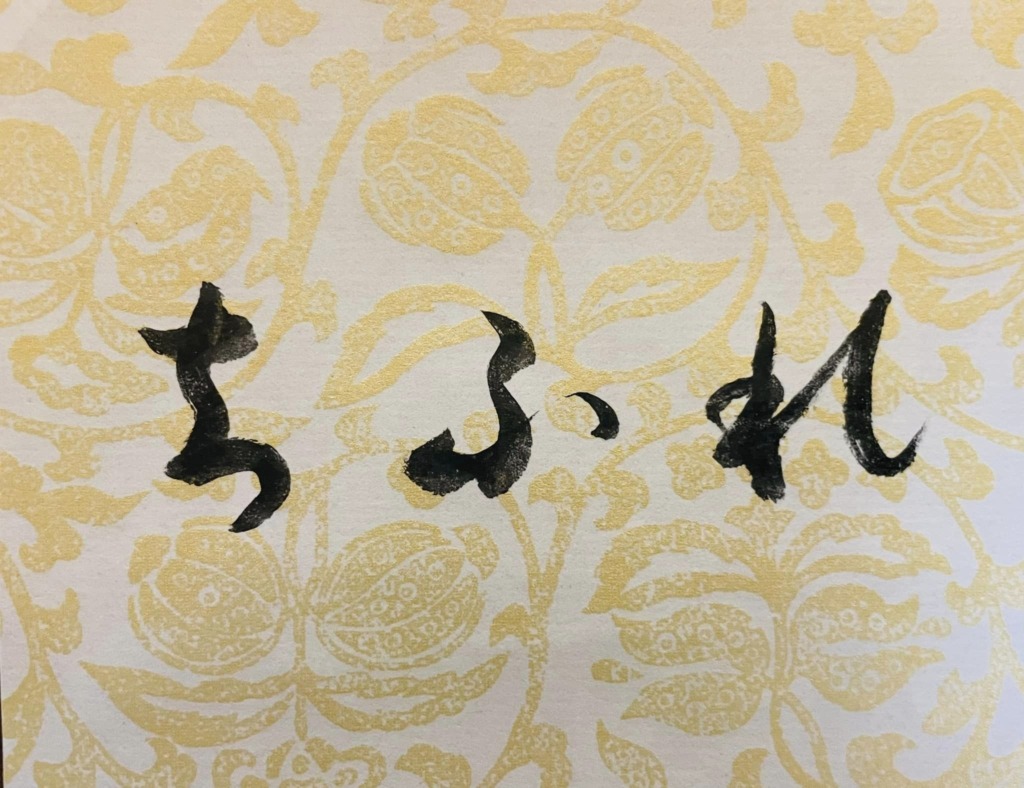 ちふれ